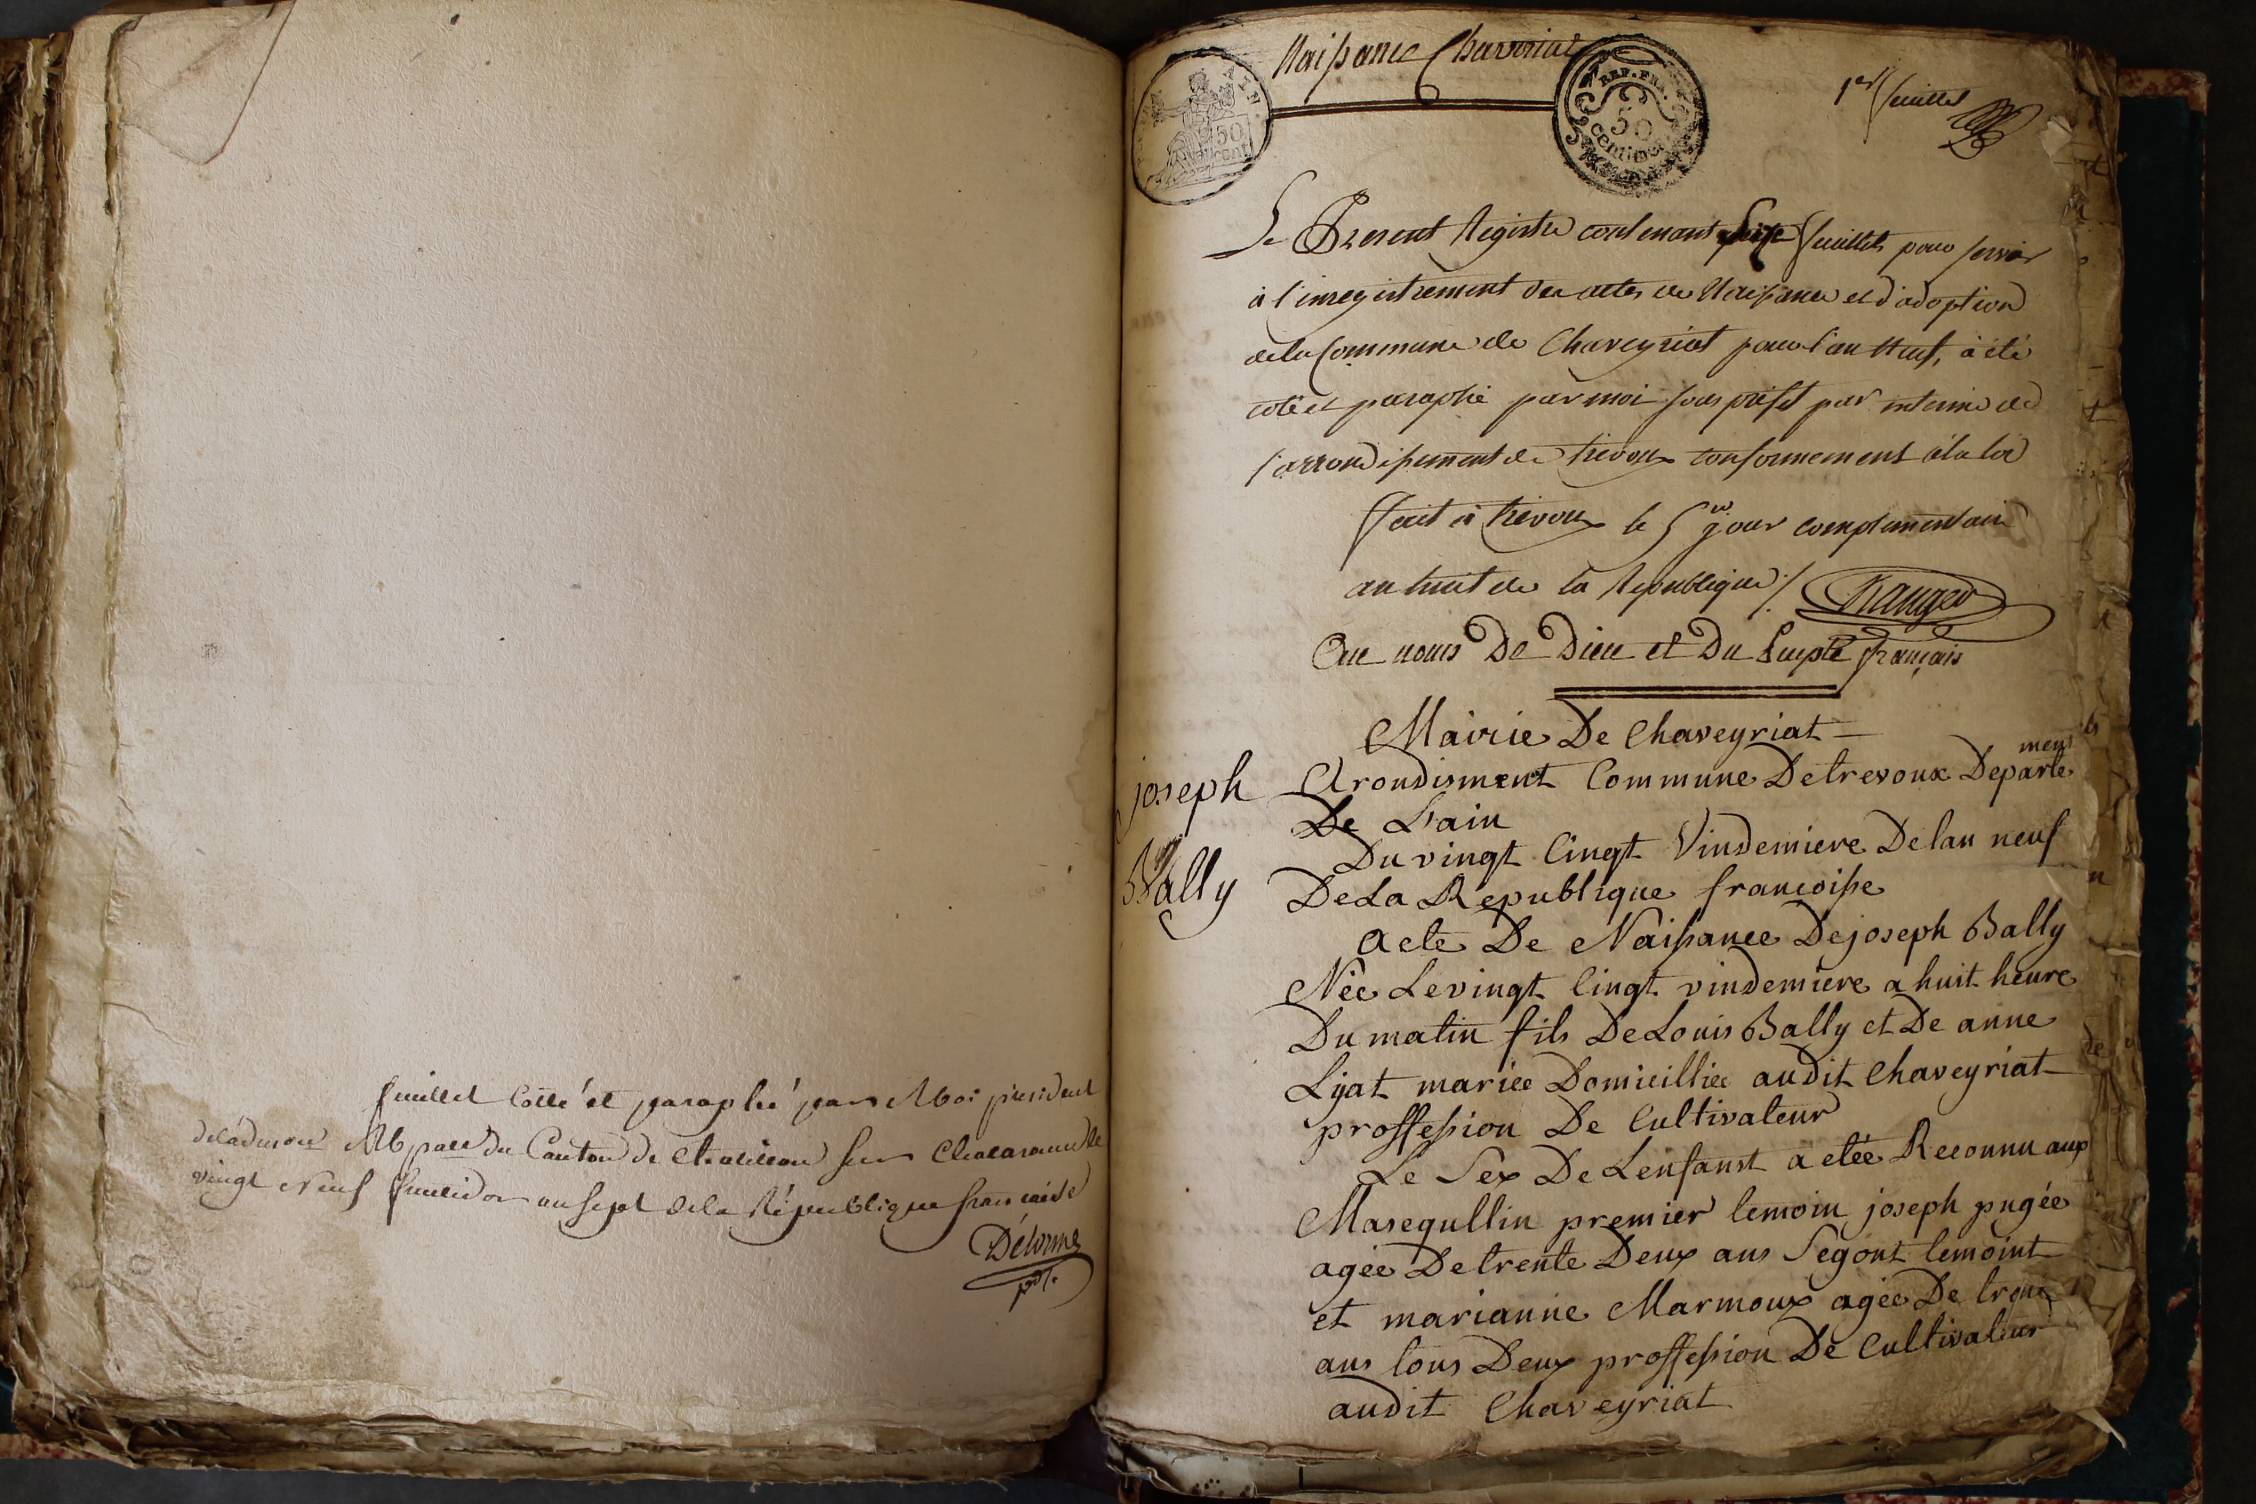 feuillet Cotté et paraphé par Moi président
de l'admon Mpale du Canton de Chatillon sur Chalaronne le
vingt Neuf fructidor an sept de la République française
Délorme
pdt.
Naissance Chaveyriat
AIN
50
cent
REP. FRA.
50
centimes
1er feuillet
Le Present Registre contenant seize feuillets pour servir
à l'enregistrement des actes de Naissance et d'adoption
de la Commune de Chaveyriat pour l'an Neuf, à été
coté et paraphé par moi sous préfet par interim de
l'arrondissement de trevoux conformement à la loi
fait à trevoux le 5e jour complementaire
an huit de la Republique /.
Au nom De Dieu et Du Peuple français
Mairie De Chaveyriat
joseph
Bally
Arondisment Commune De trevoux Departe
ment
De Lain
Du vingt Cinqt Vindemiere De lan neuf
De La Republique francoisse
acte De Naissance De joseph Bally
Née Le vingt Cinqt vindemiere a huit heure
Du matin fils De Louis Bally et De anne
Lyat mariee Domicilliee audit Chaveyriat
proffession De Cultivateur
Le Sex De Lenfanst a etée Reconnu aux
Masequllin premier temoin joseph pugée
agée De trente Deux ans Segont temoint
et marianne Marmoux agée De
ans tous Deux proffession De Cultivateur
audit Chaveyriat